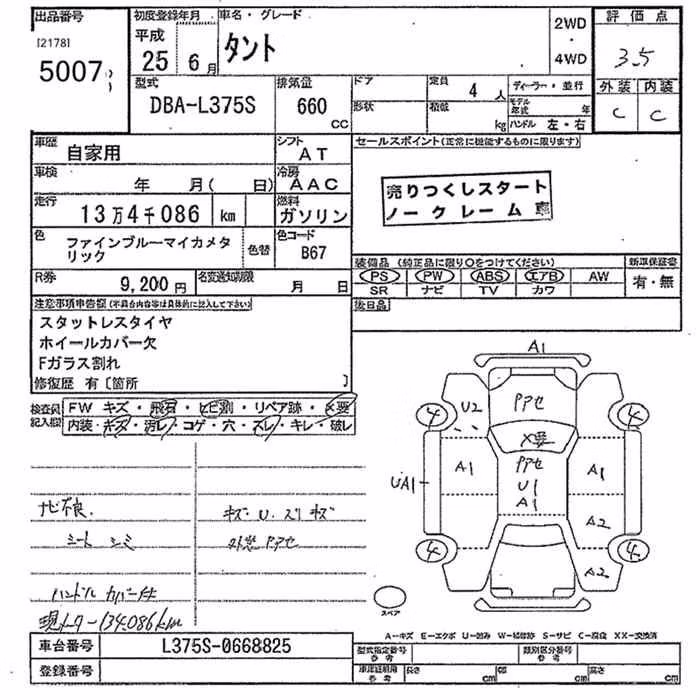 出品番号
[2178]
5007
初度登録年月
平成
25年 6月
車名・グレード
タント
2WD
・
4WD
評価点
3.5
外装 内装
C C
型式
DBA-L375S
排気量
660
CC
ドア
形状
定員 4 人
積載 kg
ディーラー・並行
モデル年式 年
ハンドル 左・右
車歴 自家用
シフト AT
車検 年 月( 日)
冷房 AAC
走行 13万4千086 km
燃料 ガソリン
色 ファインブルーマイカメタリック
色替
色コード B67
R券 9,200円
名変通知期限 月 日
セールスポイント(正常に機能するものに限ります)
売りつくしスタート
ノークレーム 車
装備品(純正品に限り○をつけてください)
新車保証書
PS PW ABS エアB AW
SR ナビ TV カワ
有・無
後日品
注意事項申告欄(不具合内容等は具体的に記入して下さい)
スタットレスタイヤ
ホイールカバー欠
Fガラス割れ
修復歴 有〔箇所 〕
検査員記入欄
FW キズ・飛石・ヒビ割・リペア跡・X要
内装・キズ・汚レ・コゲ・穴・スレ・キレ・破レ
ナビ不良.
シート シミ
ハンドル カバー付
現メーター134.086km
キズ・U.スリキズ
A1
4
U2
アアセ
4
X要
A1
アアセ
U1
A1
A1
UA1
A2
4
4
A2
スペア
A-キズ E-エクボ U-凹み W-補修跡 S-サビ C-腐食 XX-交換済
車台番号 L375S-0668825
登録番号
型式指定番号
参考
類別区分番号
参考
車庫証明用
参考
長さ cm
幅 cm
高さ cm